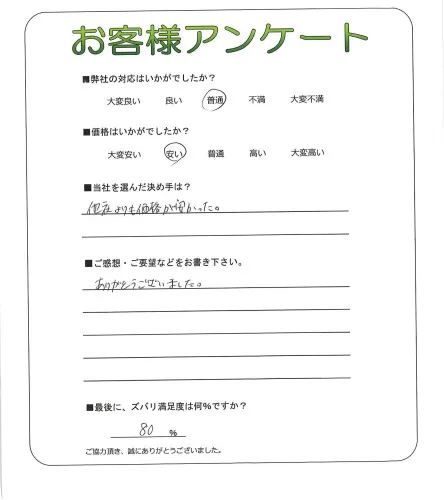 お客様アンケート
■弊社の対応はいかがでしたか？
大変良い 良い 普通 不満 大変不満
■価格はいかがでしたか？
大変安い 安い 普通 高い 大変高い
■当社を選んだ決め手は？
他社よりも価格が安かった。
■ご感想・ご要望などをお書き下さい。
ありがとうございました。
■最後に、ズバリ満足度は何%ですか？
80 %
ご協力頂き、誠にありがとうございました。